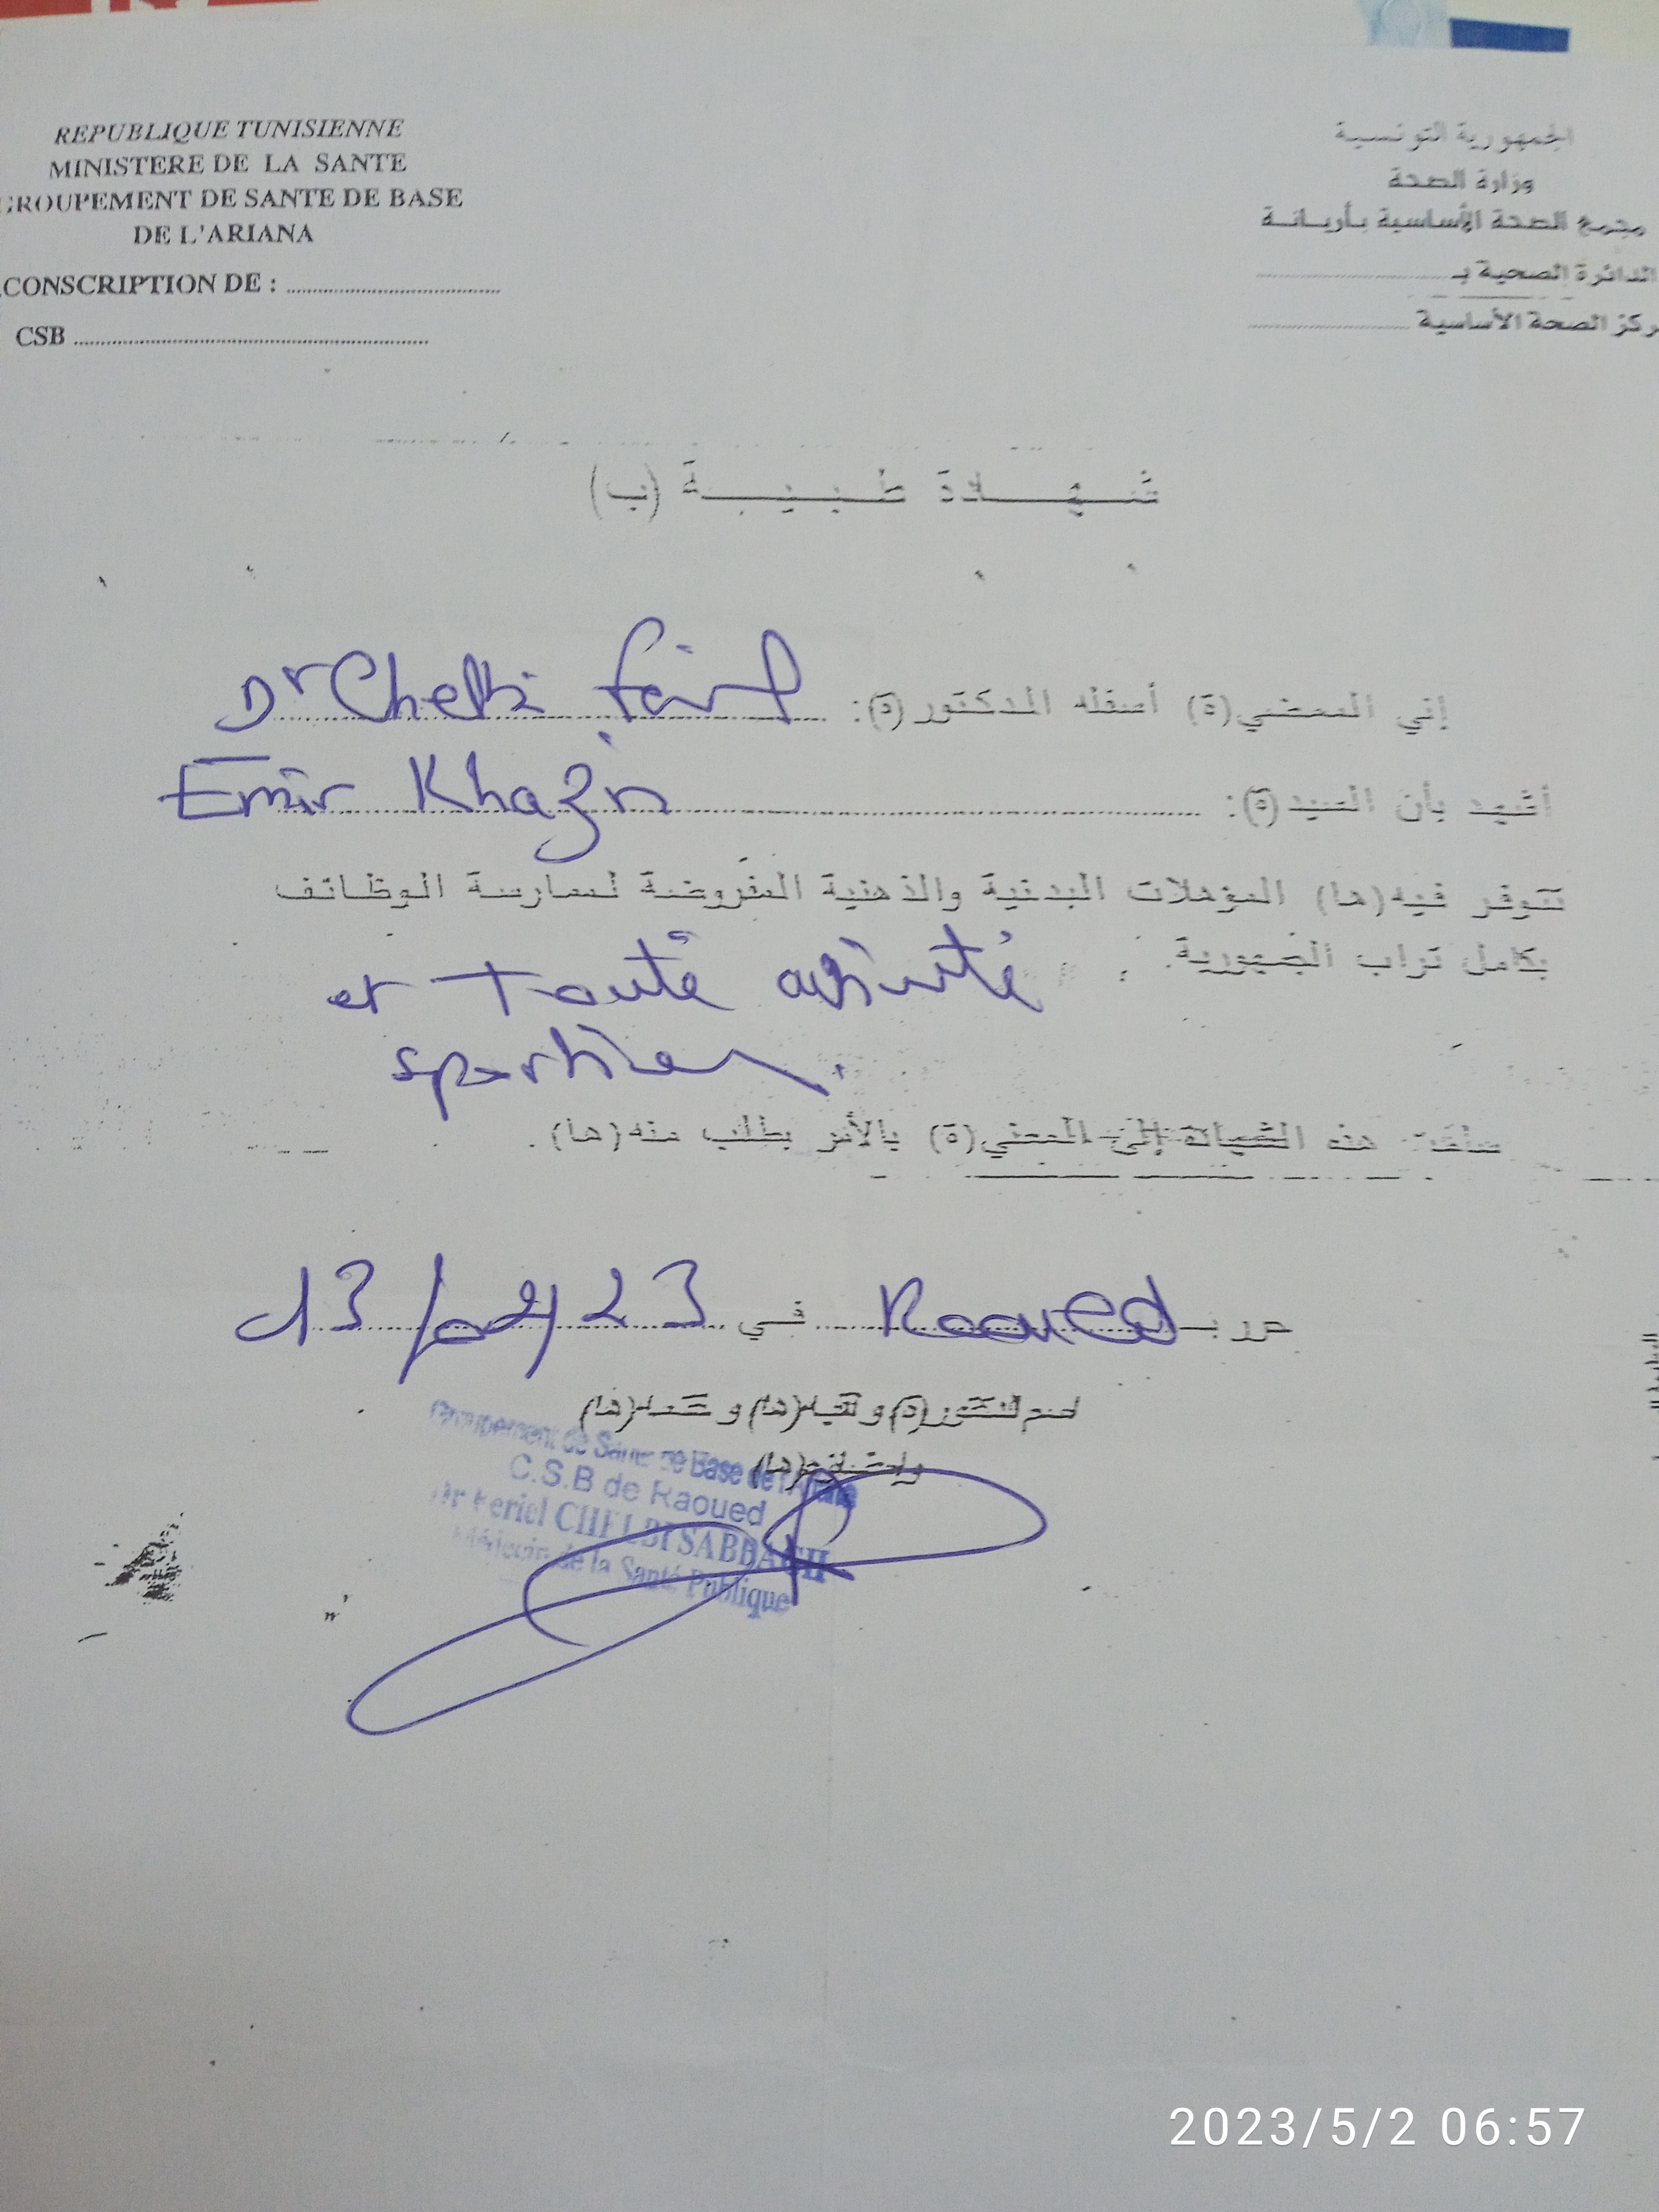 REPUBLIQUE TUNISIENNE
MINISTERE DE LA SANTE
GROUPEMENT DE SANTE DE BASE
DE L'ARIANA
CONSCRIPTION DE :
CSB
الجمهورية التونسية
وزارة الصحة
مجمع الصحة الأساسية بأريانة
الدائرة الصحية بـ
مركز الصحة الأساسية
شهادة طبية (ب)
إني الممضي(ة) أسفله الدكتور(ة): Dr Chelbi
أشهد بأن السيد(ة): Emir Khazri
تتوفر فيه(ها) المؤهلات البدنية والذهنية المفروضة لممارسة الوظائف
بكامل تراب الجمهورية.
et toute activité
sportive.
سلمت هذه الشهادة إلى المعني(ة) بالأمر بطلب منه(ها).
حرر بـ Raoued في 13/02/23
ختم الدكتور(ة) و
وإمضاؤه(ها)
Groupement de Santé de Base de l'Ariana
C.S.B de Raoued
Dr Feriel CHELBI SABBAGH
Médecin de la Santé Publique
2023/5/2 06:57